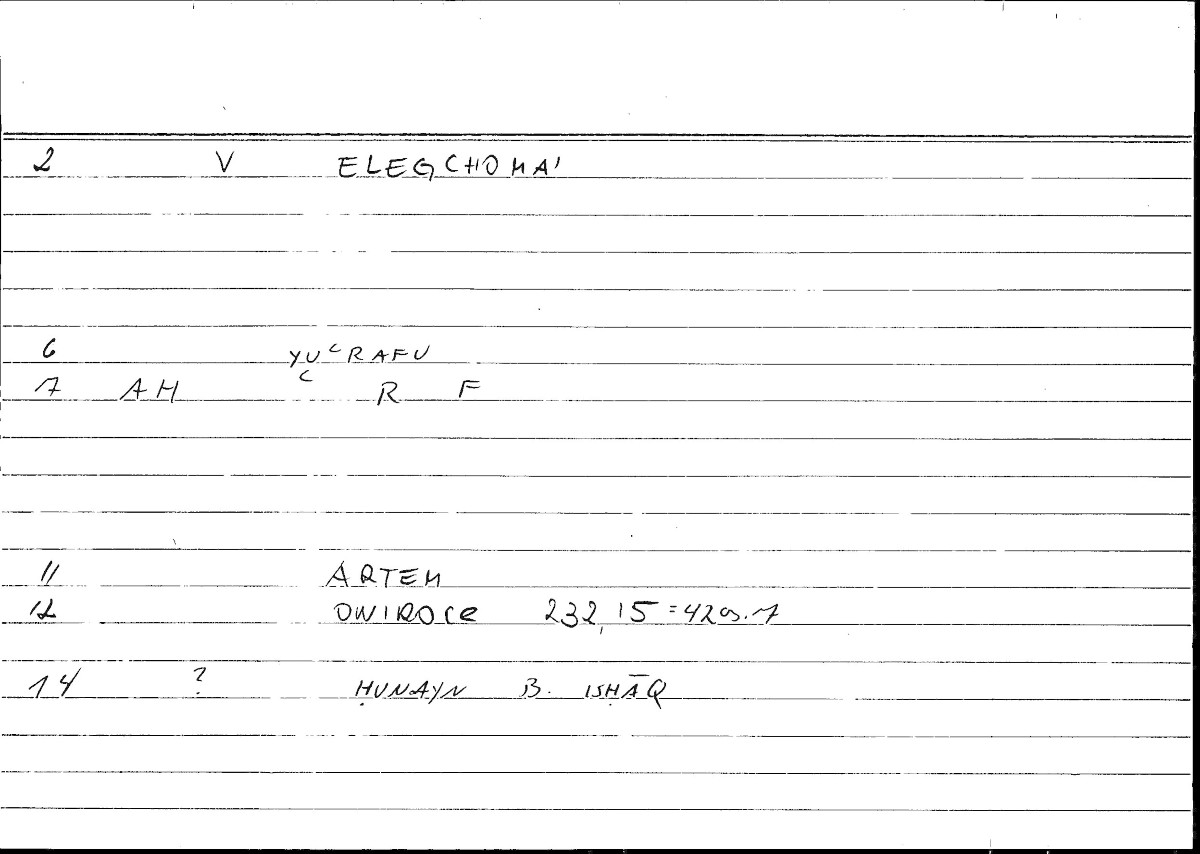 2 V ELEGCHOMAI
6 YUʿRAFU
7 AH ʿ R F
11 ARTEM
12 ONIROCR 232,15 = 429.7
14 ? ḤUNAYN B. ISḤĀQ